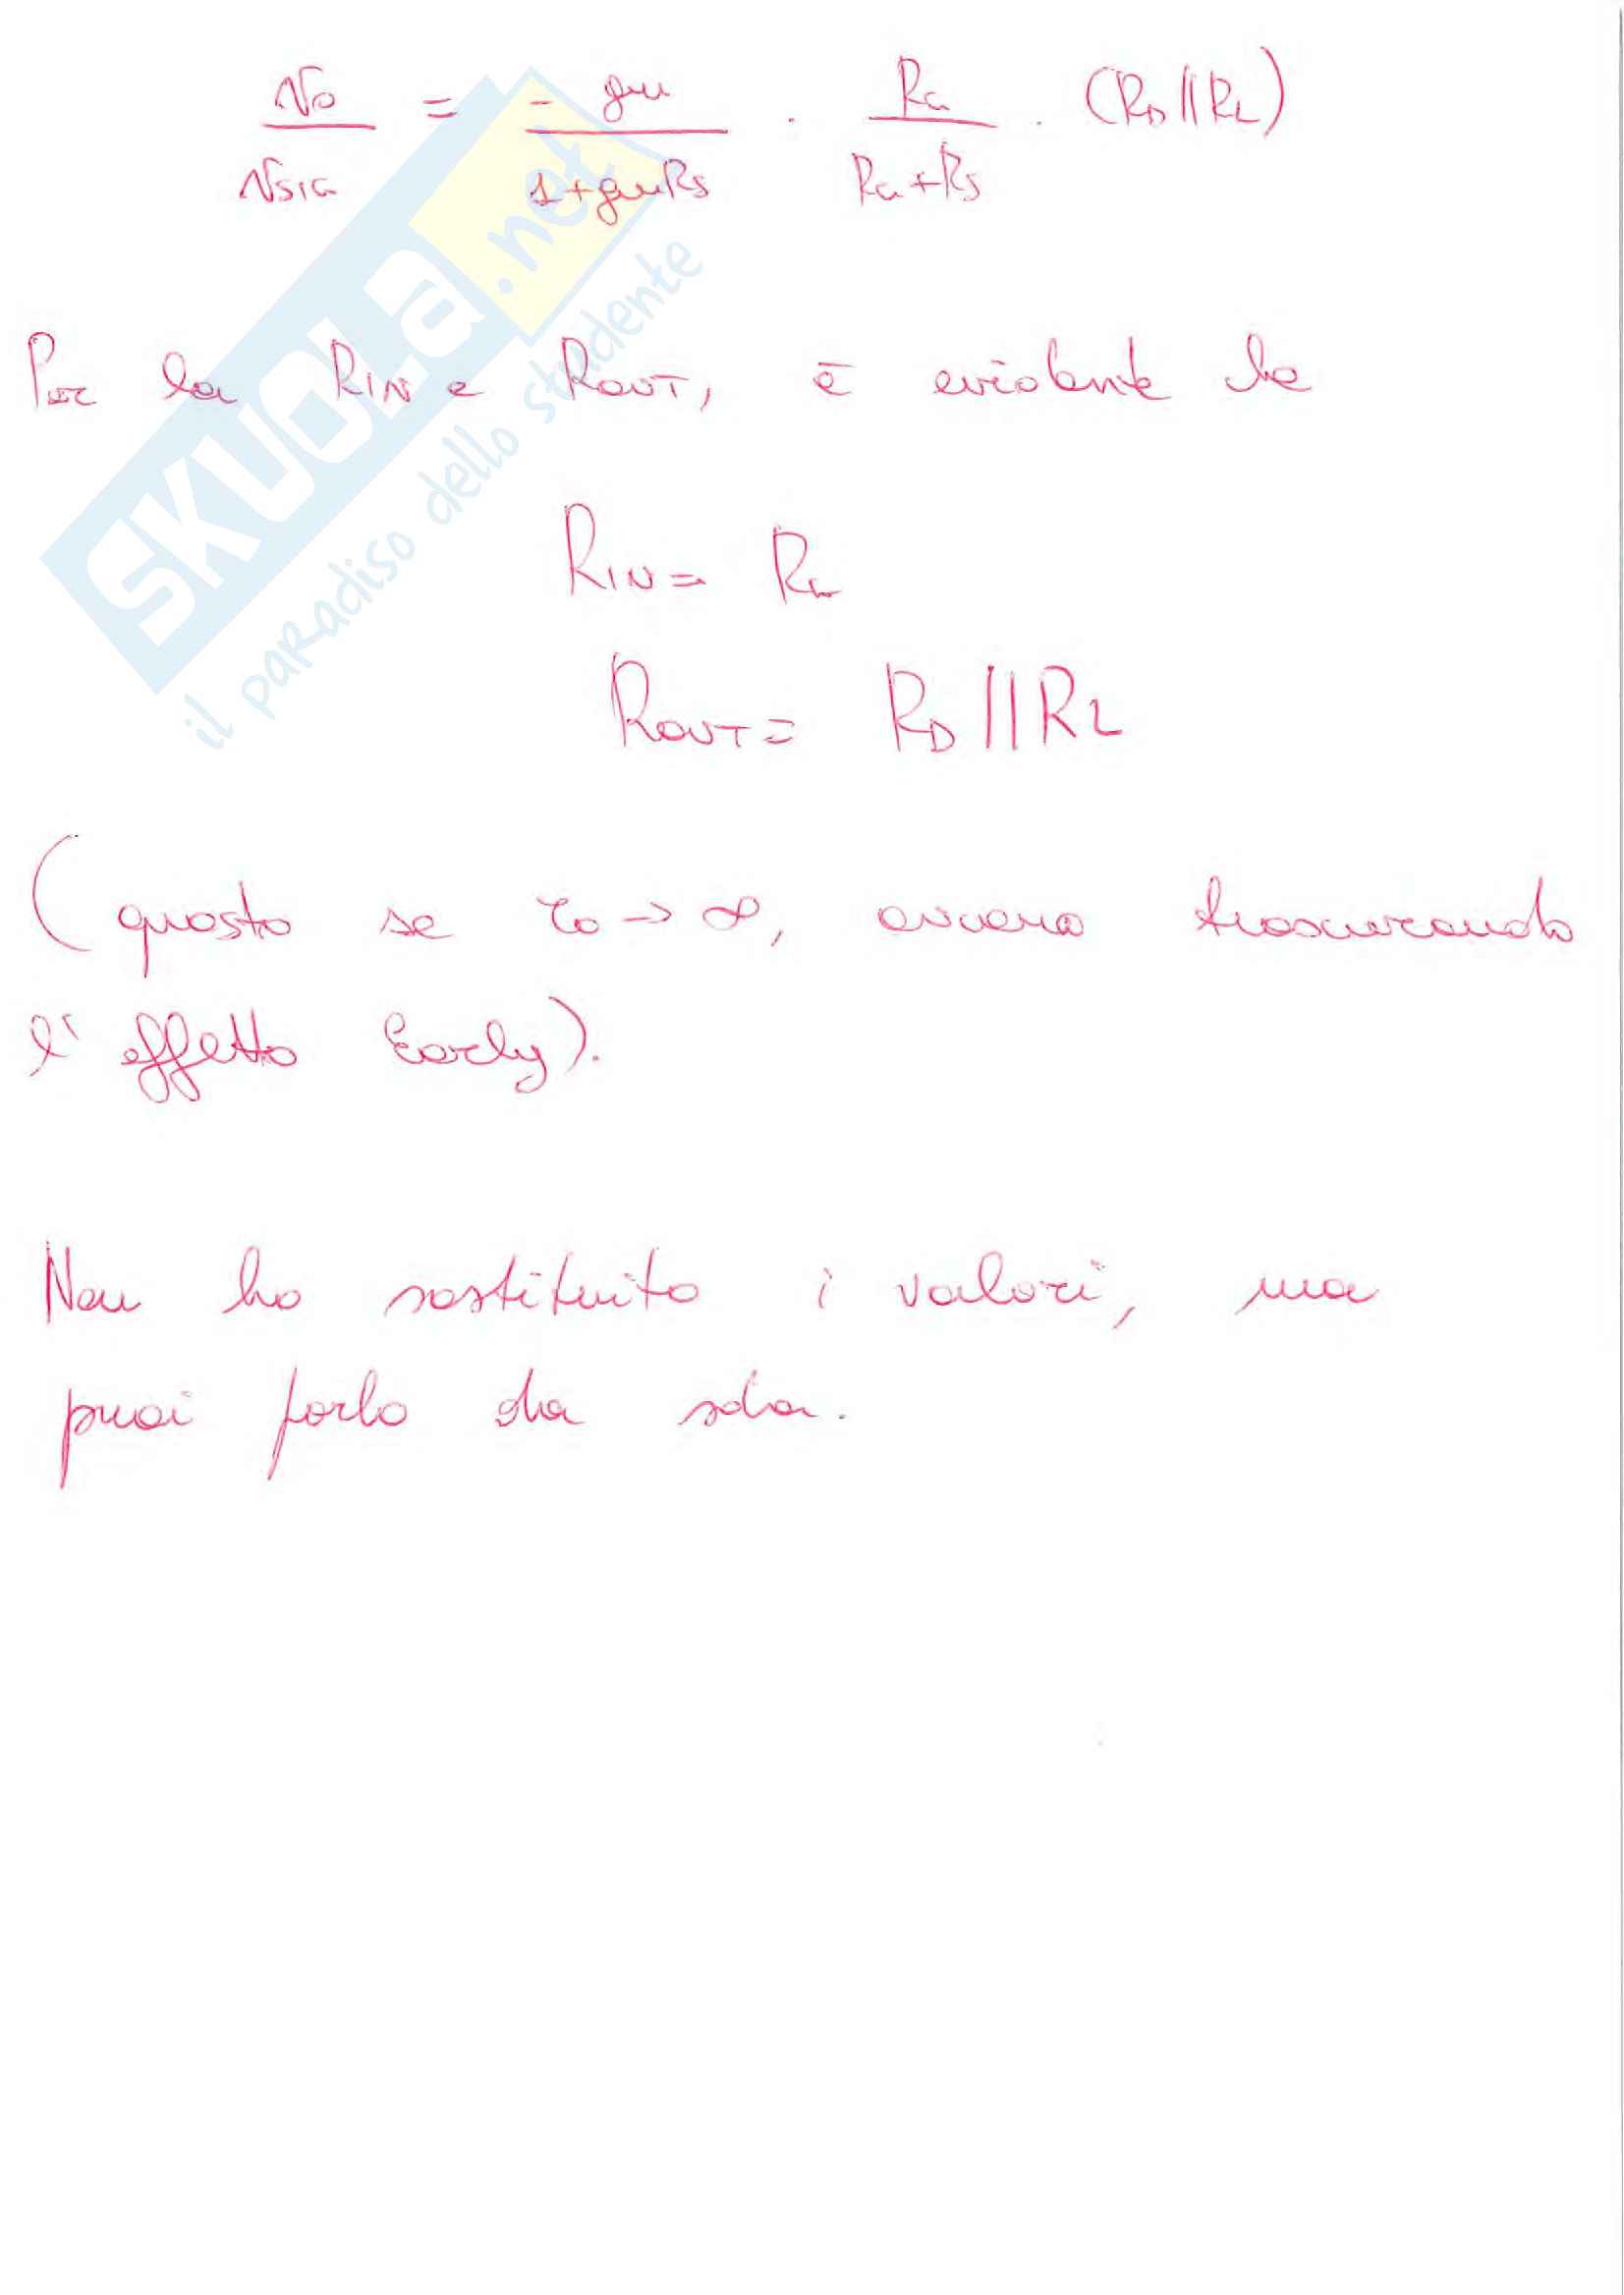 vo / vsig = - gm / 1+gmRs · RG / RG+Rs · (RD||RL)
Per la RIN e ROUT, è evidente che
RIN = RG
ROUT = RD||RL
(questo se ro → ∞, ovvero trascurando
l'effetto Early).
Non ho sostituito i valori, ma
puoi farlo da sola.
SKUOLA.net
il paradiso dello studente